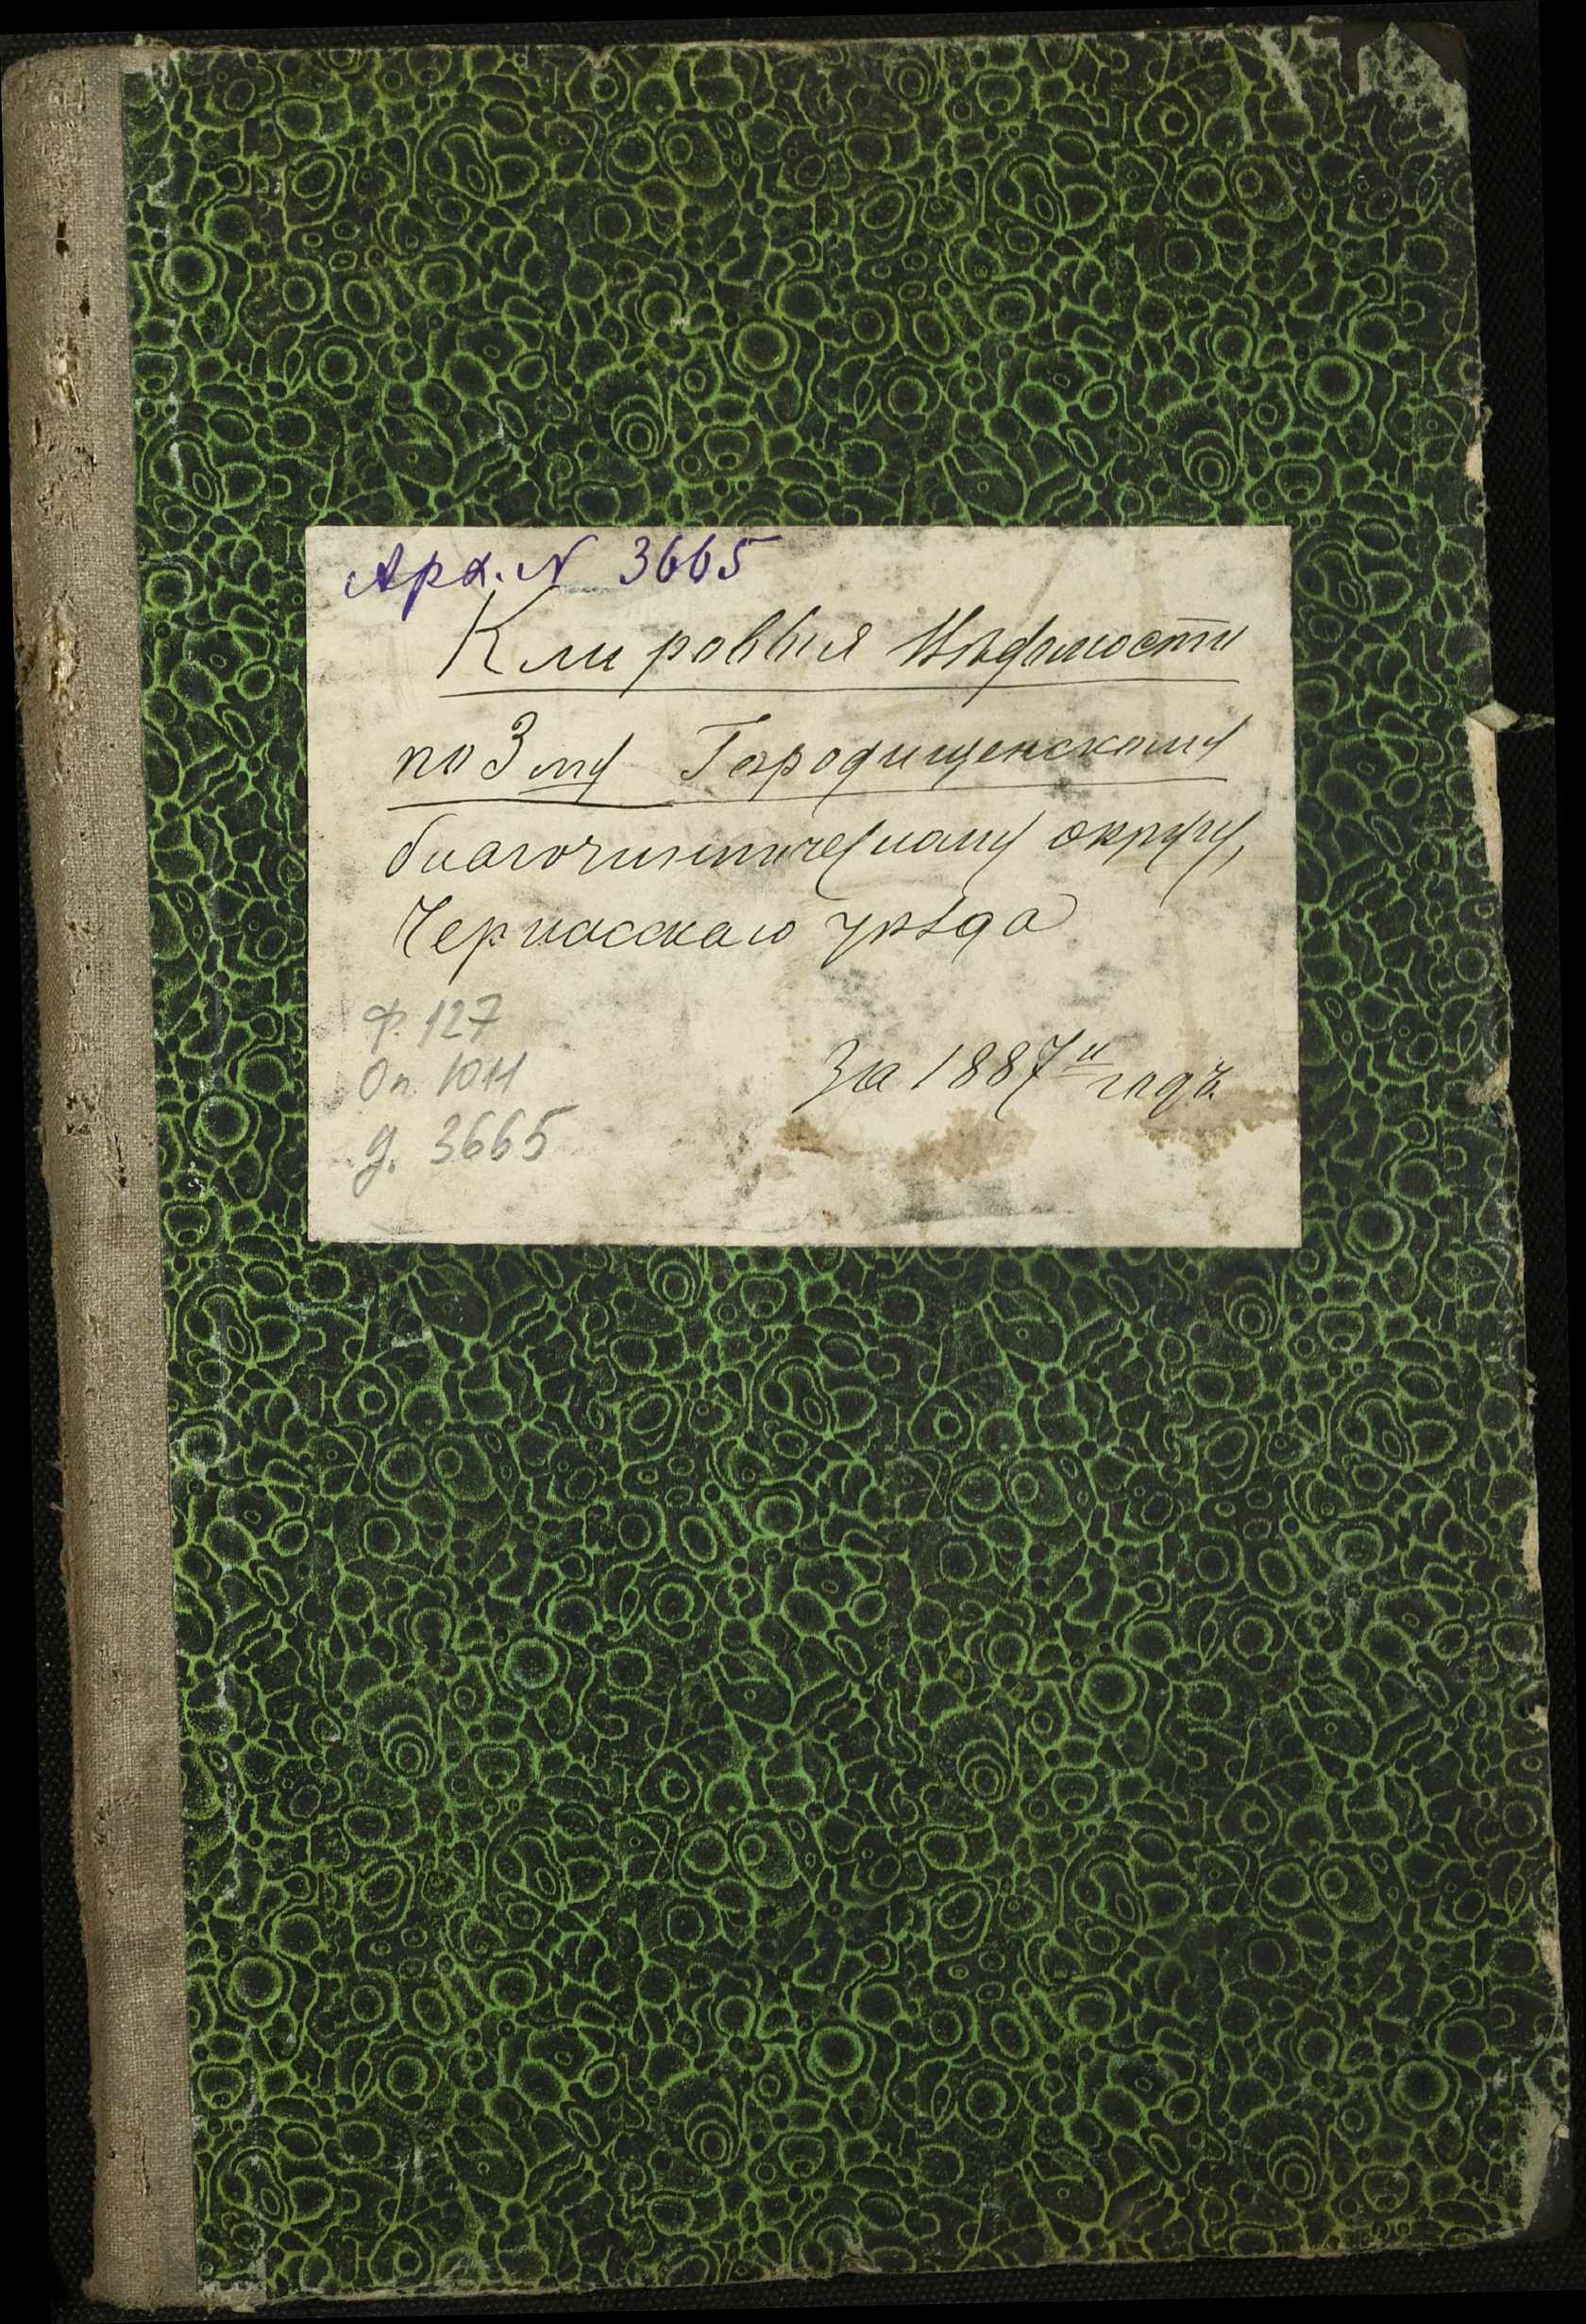 Арх. № 3665
Клировыя Вѣдомости
по 3му Городищенскому
благочинническому округу,
Черкасскаго уѣзда
Ф. 127
За 1887й годъ.
Оп. 1011
д. 3665